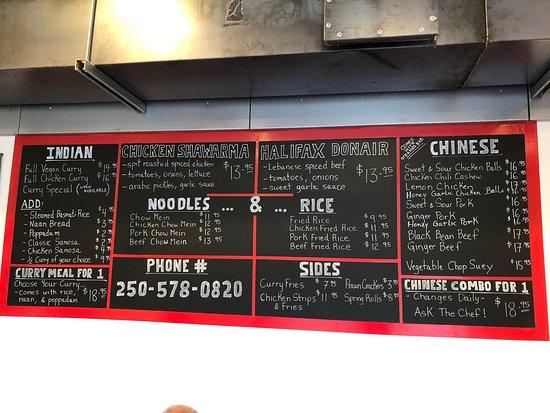 INDIAN
Full Vegan Curry $14.95
Full Chicken Curry $16.95
Curry Special (when AVAILABLE)
ADD:
- Steamed Basmati Rice $4.95
- Naan Bread $3
- Poppadum $2
- Classic Samosa $2
- Chicken Samosa $4
- 1/2 Curry of your choice $9
CURRY MEAL FOR 1
Choose Your Curry
- comes with rice, naan, & poppadum
$18.95
CHICKEN SHAWARMA
- spit roasted spiced chicken
- tomatoes, onions, lettuce
- arabic pickles, garlic sauce
$13.95
HALIFAX DONAIR
- Lebanese spiced beef
- tomatoes, onions
- sweet garlic sauce
$13.95
NOODLES ... & ... RICE
Chow Mein $11.95
Chicken Chow Mein $12.95
Pork Chow Mein $12.95
Beef Chow Mein $13.95
Fried Rice $9.95
Chicken Fried Rice $11.95
Pork Fried Rice $11.95
Beef Fried Rice $12.95
PHONE #
250-578-0820
SIDES
Curry Fries $7.95
Chicken Strips & Fries $11.95
Prawn Crackers $3.95
Spring Rolls $8.95
CHINESE
Sweet & Sour Chicken Balls $16.95
Chicken Chili Cashew $16.95
Lemon Chicken $17.95
Honey Garlic Chicken Balls $16.95
Sweet & Sour Pork $16.95
Ginger Pork $16.95
Honey Garlic Pork $16.95
Black Bean Beef $17.95
Ginger Beef $17.95
Vegetable Chop Suey $15.95
CHINESE COMBO FOR 1
- Changes Daily -
Ask The Chef!
$18.95